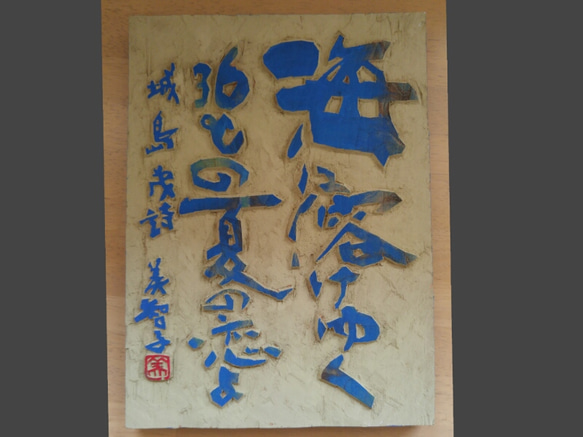 海に溶けゆく
36℃の夏の恋よ
城島 詩 美智子
美